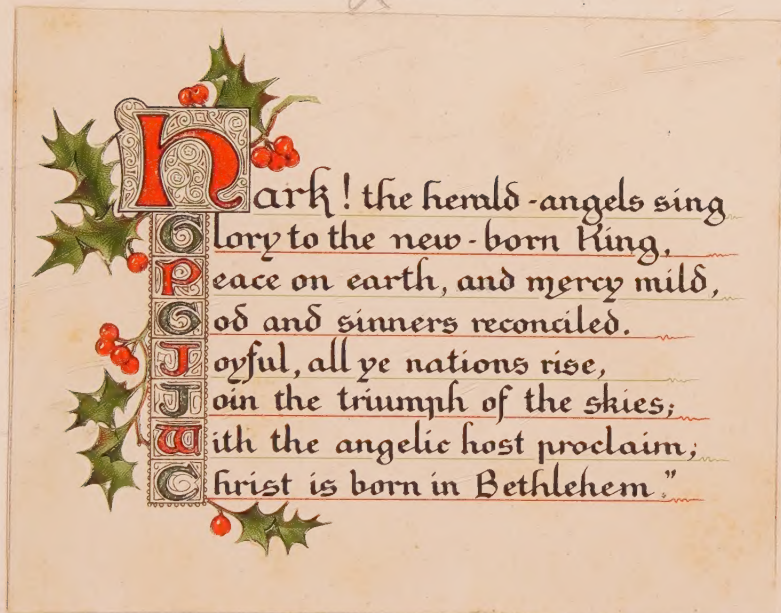 Hark! the herald-angels sing
Glory to the new-born King,
Peace on earth, and mercy mild,
God and sinners reconciled.
Joyful, all ye nations rise,
Join the triumph of the skies;
With the angelic host proclaim;
Christ is born in Bethlehem."